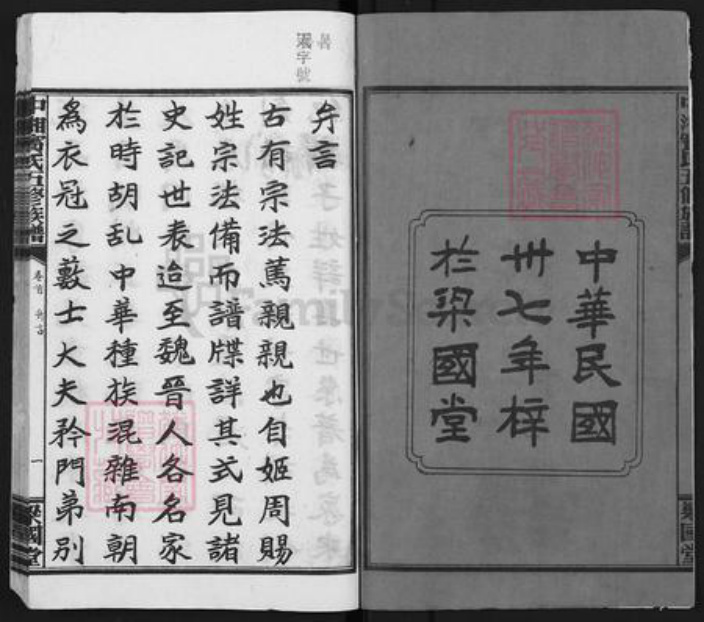 中華民國
卅七年梓
於梁國堂
弁言
古有宗法篤親親也自姬周賜
姓宗法備而譜牒詳其式見諸
史記世表迨至魏晉人各名家
於時胡亂中華種族混雜南朝
為衣冠之藪士大夫矜門第別
卷首 弁言
一
梁國堂
字號
FamilySearch